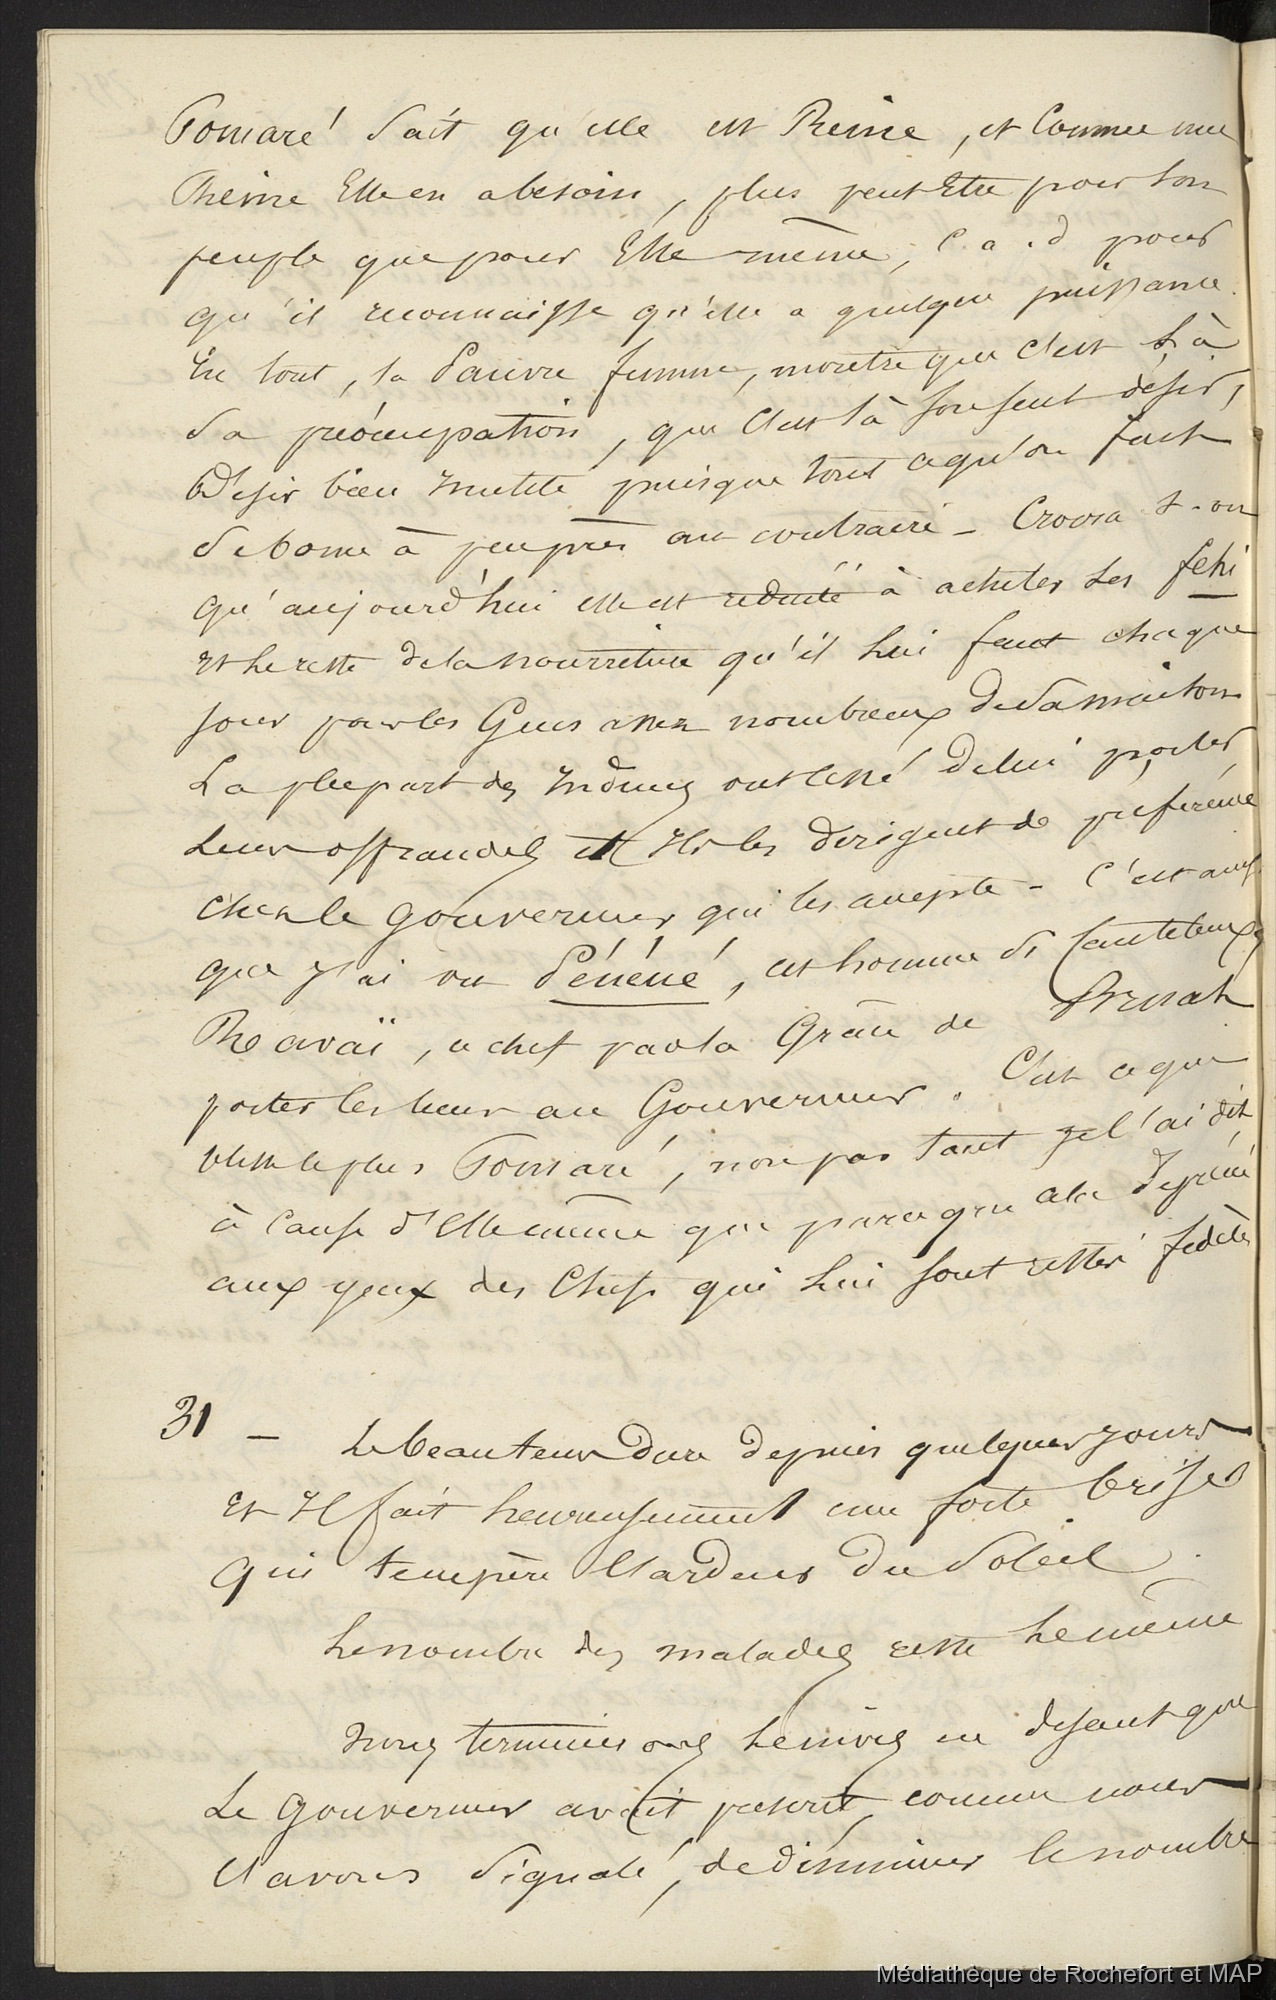 Pomaré sait qu'elle est Reine, et comme une
Reine Elle en a besoin, plus peut Etre pour son
peuple que pour Elle même, c. a. d pour
qu'il reconnaisse qu'elle a quelque puissance.
En tout, la Pauvre femme, montre que c'est là
sa préocupation, que c'est là son seul désir,
Désir bien Inutile puisque tout ce qu'on fait
se borne à peu près au contraire - Croira t-on
qu'aujourd'hui elle est réduite à acheter les fehi
et le reste de la nourriture qu'il lui faut chaque
jour pour les Gens assez nombreux de sa maison
La plupart des Indiens ont cessé de lui porter
leurs offrandes et Ils les dirigent de préférence
chez le gouverneur qui les accepte - C'est ainsi
que j'ai vu Pénéné, cet homme si cauteleux,
ce chef par la Grâce de Bruat
porter les siens au Gouverneur. C'est ce que
blesse le plus Pomaré, non pas tant je l'ai dit
à cause d'Elle même que parce que cela déprécie
aux yeux des Chefs qui lui sont restés fidèles
31 - Le beau tems dure depuis quelques jours
et Il fait heureusement une forte brise
qui tempère l'ardeur du Soleil.
Le nombre des malades reste le même
Nous terminions le mois en disant que
Le gouverneur avait prescrit, comme nous
l'avons signalé, de diminuer le nombre
Médiathèque de Rochefort et MAP